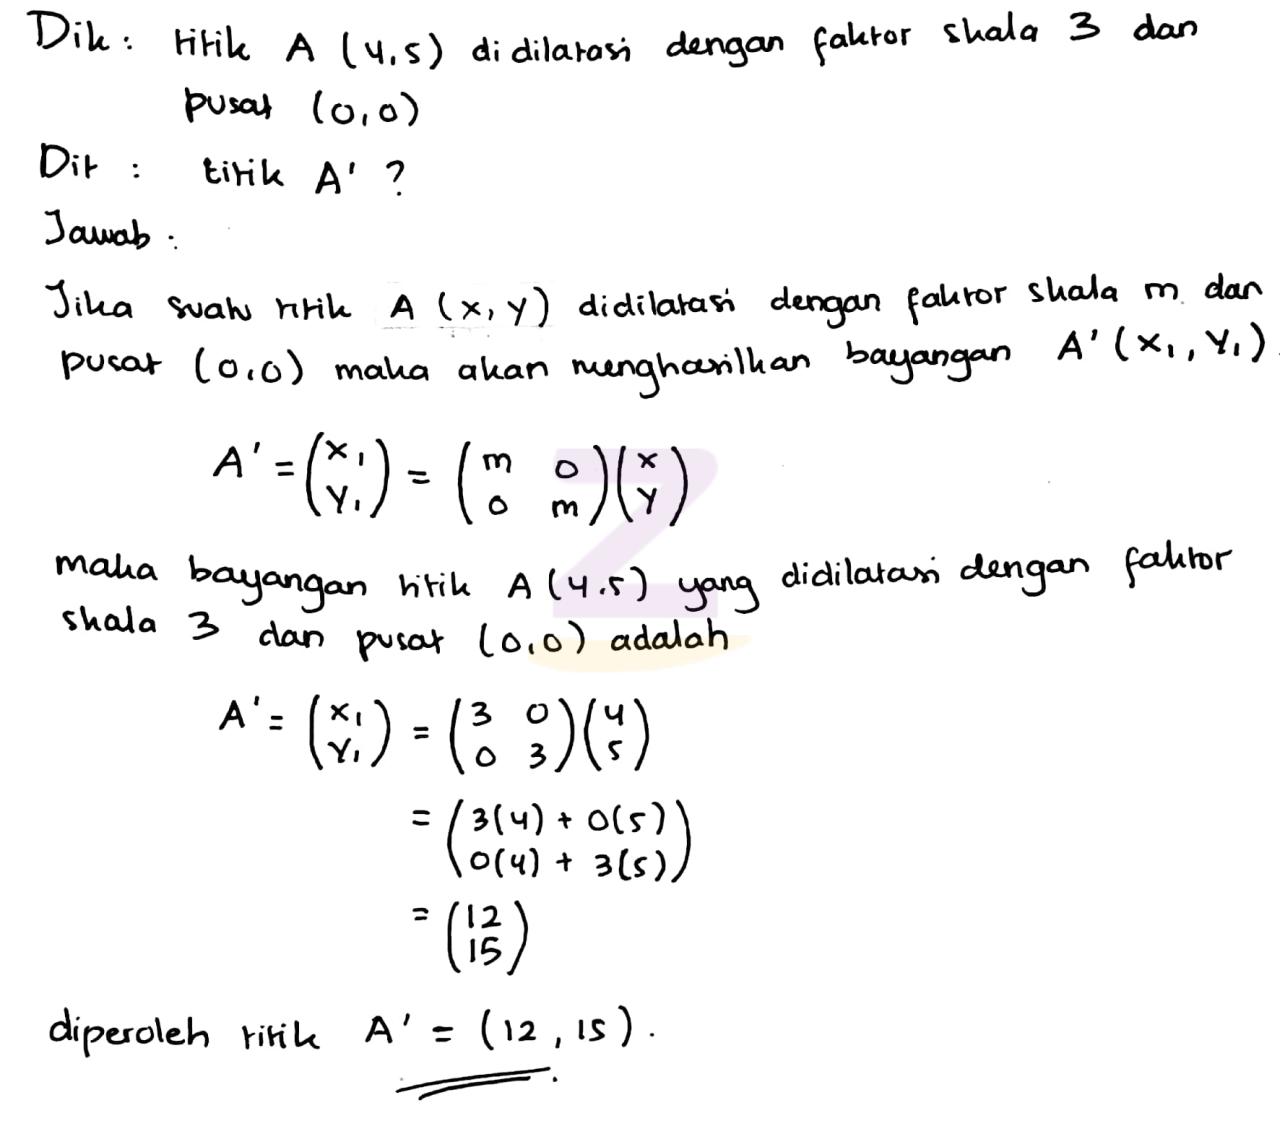 Dik : titik A (4,5) didilatasi dengan faktor skala 3 dan
pusat (0,0)
Dit : titik A' ?
Jawab :
Jika suatu titik A (x, y) didilatasi dengan faktor skala m dan
pusat (0,0) maka akan menghasilkan bayangan A' (x₁, y₁).
A' = (x₁ y₁) = (m 0 0 m)(x y)
maka bayangan titik A (4,5) yang didilatasi dengan faktor
skala 3 dan pusat (0,0) adalah
A' = (x₁ y₁) = (3 0 0 3)(4 5)
= (3(4) + 0(5) 0(4) + 3(5))
= (12 15)
diperoleh titik A' = (12, 15).